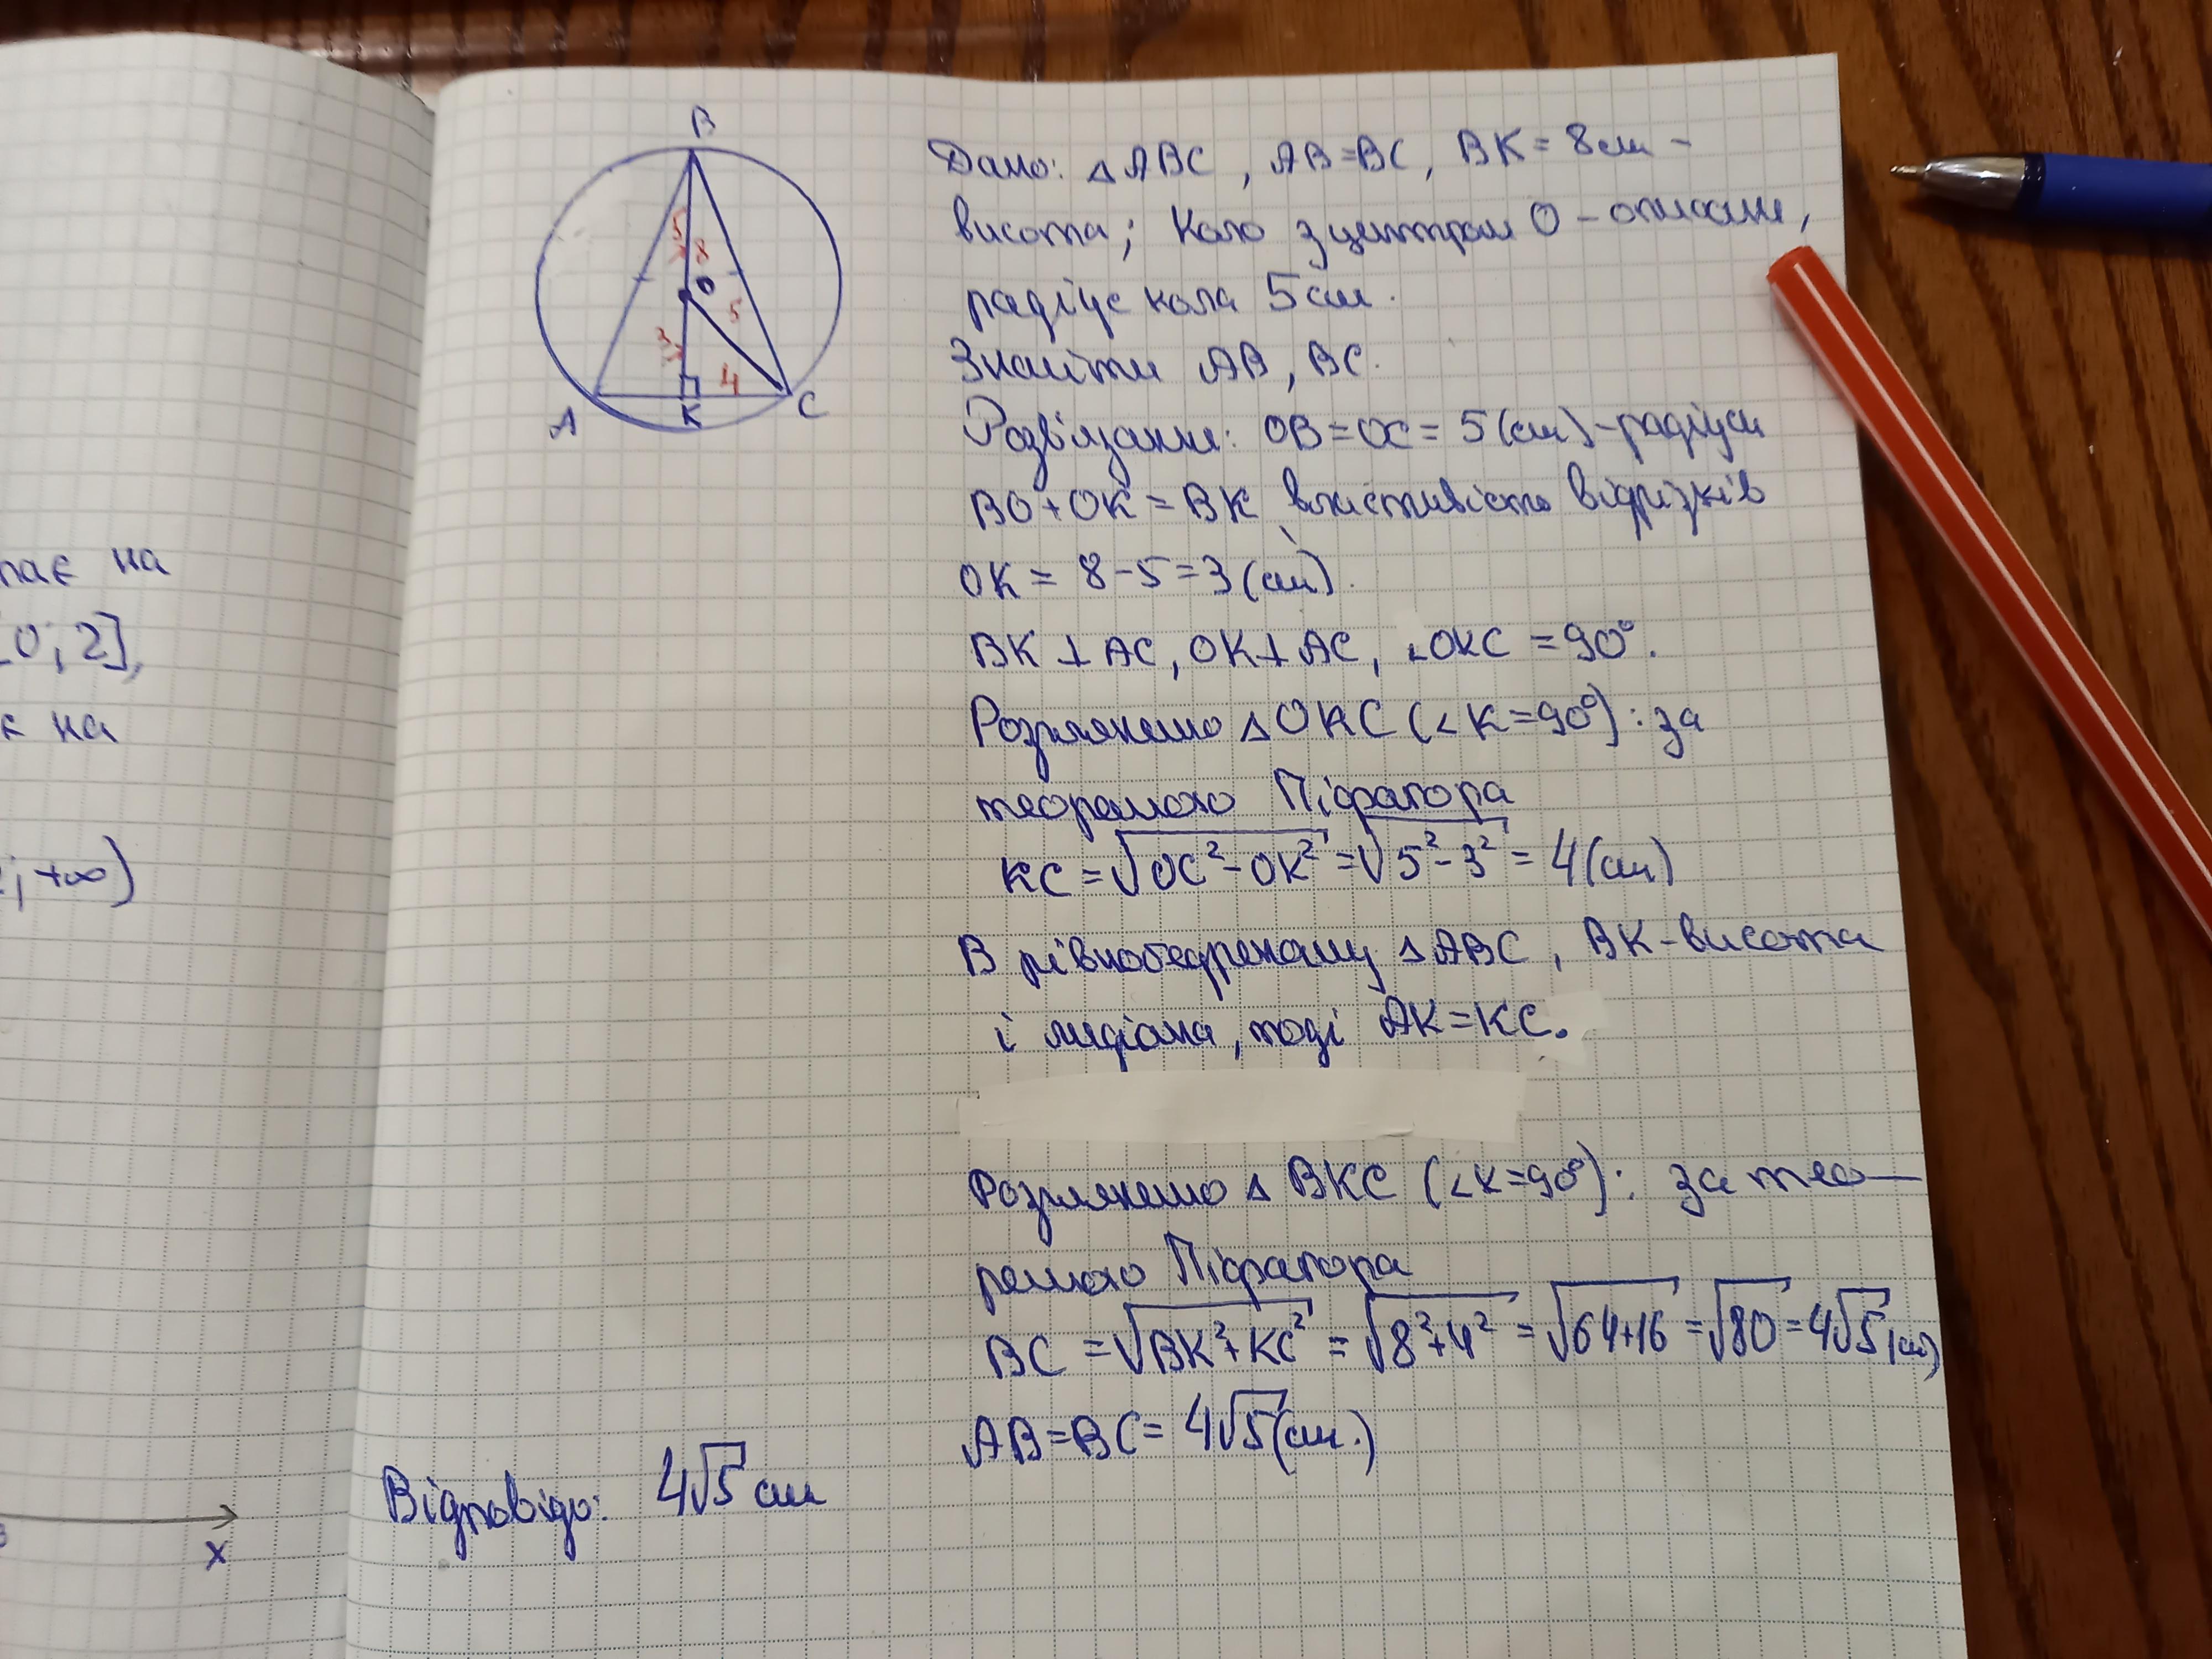 пає на
[0; 2],
є на
; +∞)
x
B
5
8
O
5
3
4
A
K
C
Дано: △ABC, AB=BC, BK = 8см –
висота; Коло з центром O – описане,
радіус кола 5см.
Знайти AB, BC.
Розв'язання: OB=OC = 5(см)-радіуси
BO+OK = BK властивість відрізків
OK = 8-5=3(см).
BK ⊥ AC, OK ⊥ AC, ∠OKC = 90°.
Розглянемо △OKC (∠K=90°): за
теоремою Піфагора
KC = √(OC²-OK²) = √(5²-3²) = 4(см)
В рівнобедреному △ABC, BK-висота
і медіана, тоді AK=KC.
Розглянемо △BKC (∠K=90°): за тео–
ремою Піфагора
BC = √(BK²+KC²) = √(8²+4²) = √(64+16) = √80 = 4√5(см)
AB=BC= 4√5(см.)
Відповідь: 4√5 см